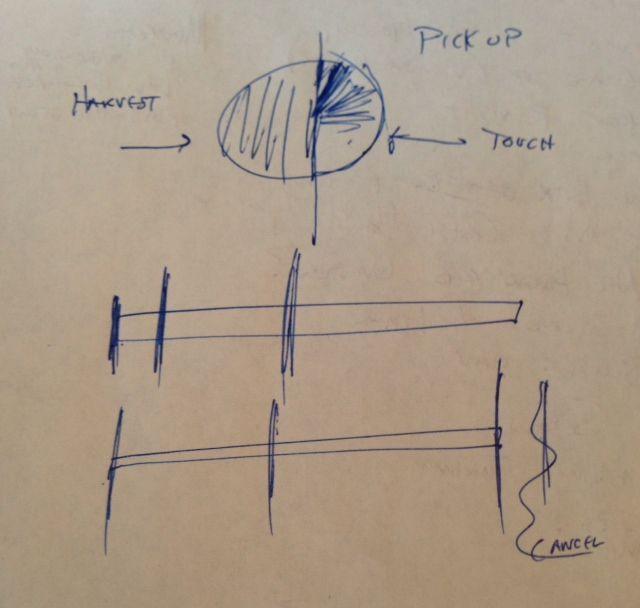 PICK UP
HARVEST
TOUCH
CANCEL